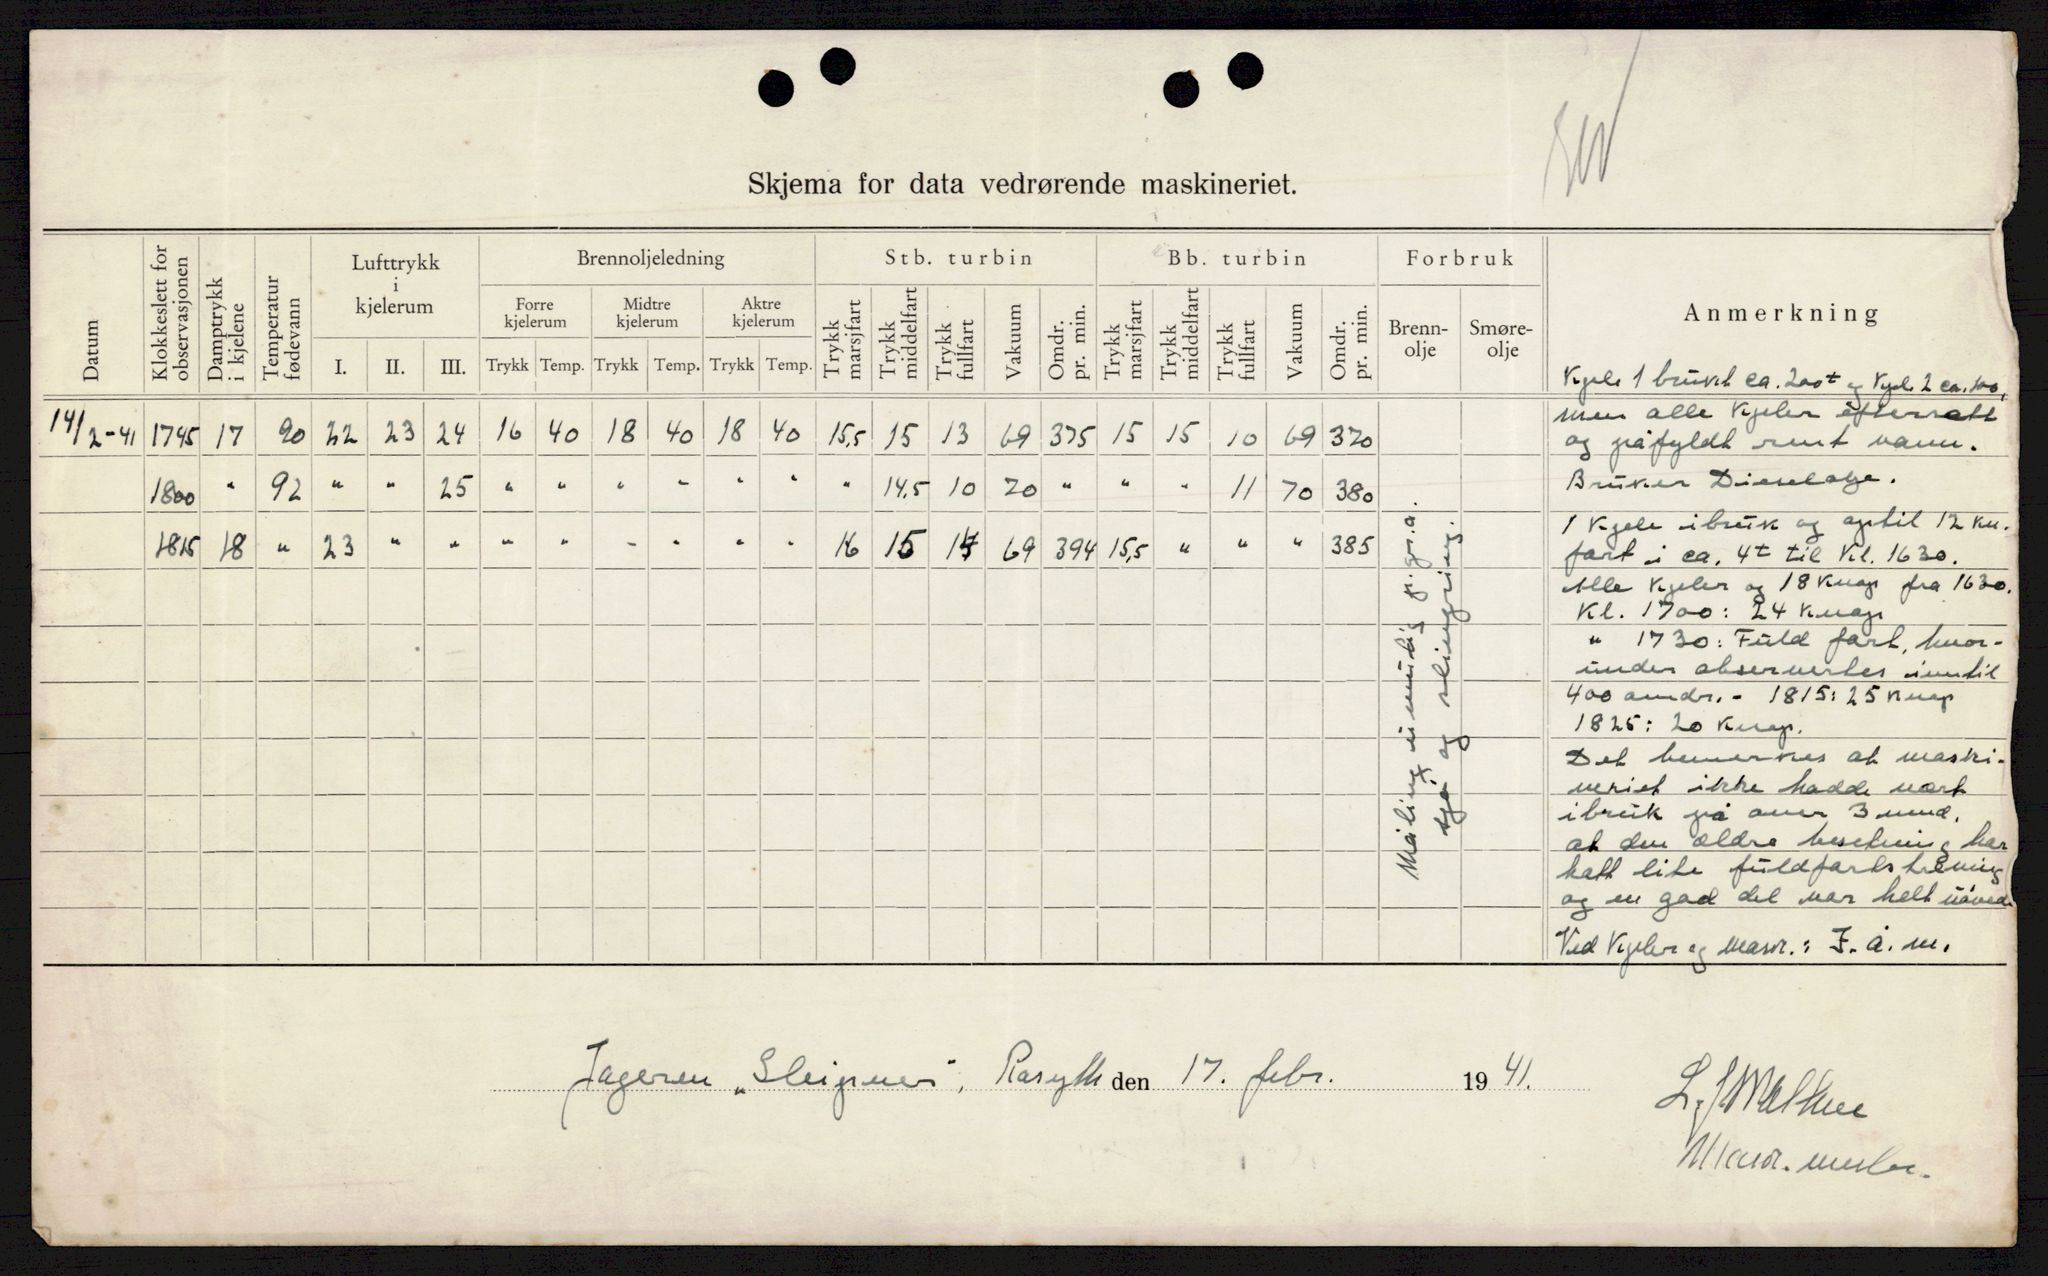 Skjema for data vedrørende maskineriet.
Datum
Klokkeslett for observasjonen
Damptrykk i kjelene
Temperatur fødevann
Lufttrykk i kjelerum
I. II. III.
Brennoljeledning
Forre kjelerum Midtre kjelerum Aktre kjelerum
Trykk Temp. Trykk Temp. Trykk Temp.
Stb. turbin
Trykk marsjfart
Trykk middelfart
Trykk fullfart
Vakuum
Omdr. pr. min.
Bb. turbin
Trykk marsjfart
Trykk middelfart
Trykk fullfart
Vakuum
Omdr. pr. min.
Forbruk
Brenn-olje Smøre-olje
Anmerkning
14/2-41 1745 17 90 22 23 24 16 40 18 40 18 40 15,5 15 13 69 375 15 15 10 69 370
1800 " 92 " " 25 " " " " " " " 14,5 10 70 " " " 11 70 380
1815 18 " 23 " " " " " " " " 16 15 14 69 394 15,5 " " " 385
Måling umulig p.gr.a.
sjø og slingring.
Kjele 1 brukt ca. 200t og Kjele 2 ca. 100,
men alle kjeler efterrsatt
og påfyldt rent vann.
Bruker Dieselolje.
1 Kjele ibruk og optil 12 kn.
fart i ca. 4t til Kl. 1630.
Alle kjeler og 18 knop fra 1630.
Kl. 1700: 24 knop
" 1730: Fuld fart, hvor-
under observertes inntil
400 omdr. - 1815: 25 knop
1825: 20 knop.
Det bemerkes at maski-
neriet ikke hadde vært
ibruk på over 3 mnd.
at den ældre besetning har
hatt lite fuldfartstrening
og en god del var helt uøvede
Ved Kjeler og Mask.: I. a. m.
Jageren "Sleipner", Rosyth den 17. febr. 1941.
Mask. mester.